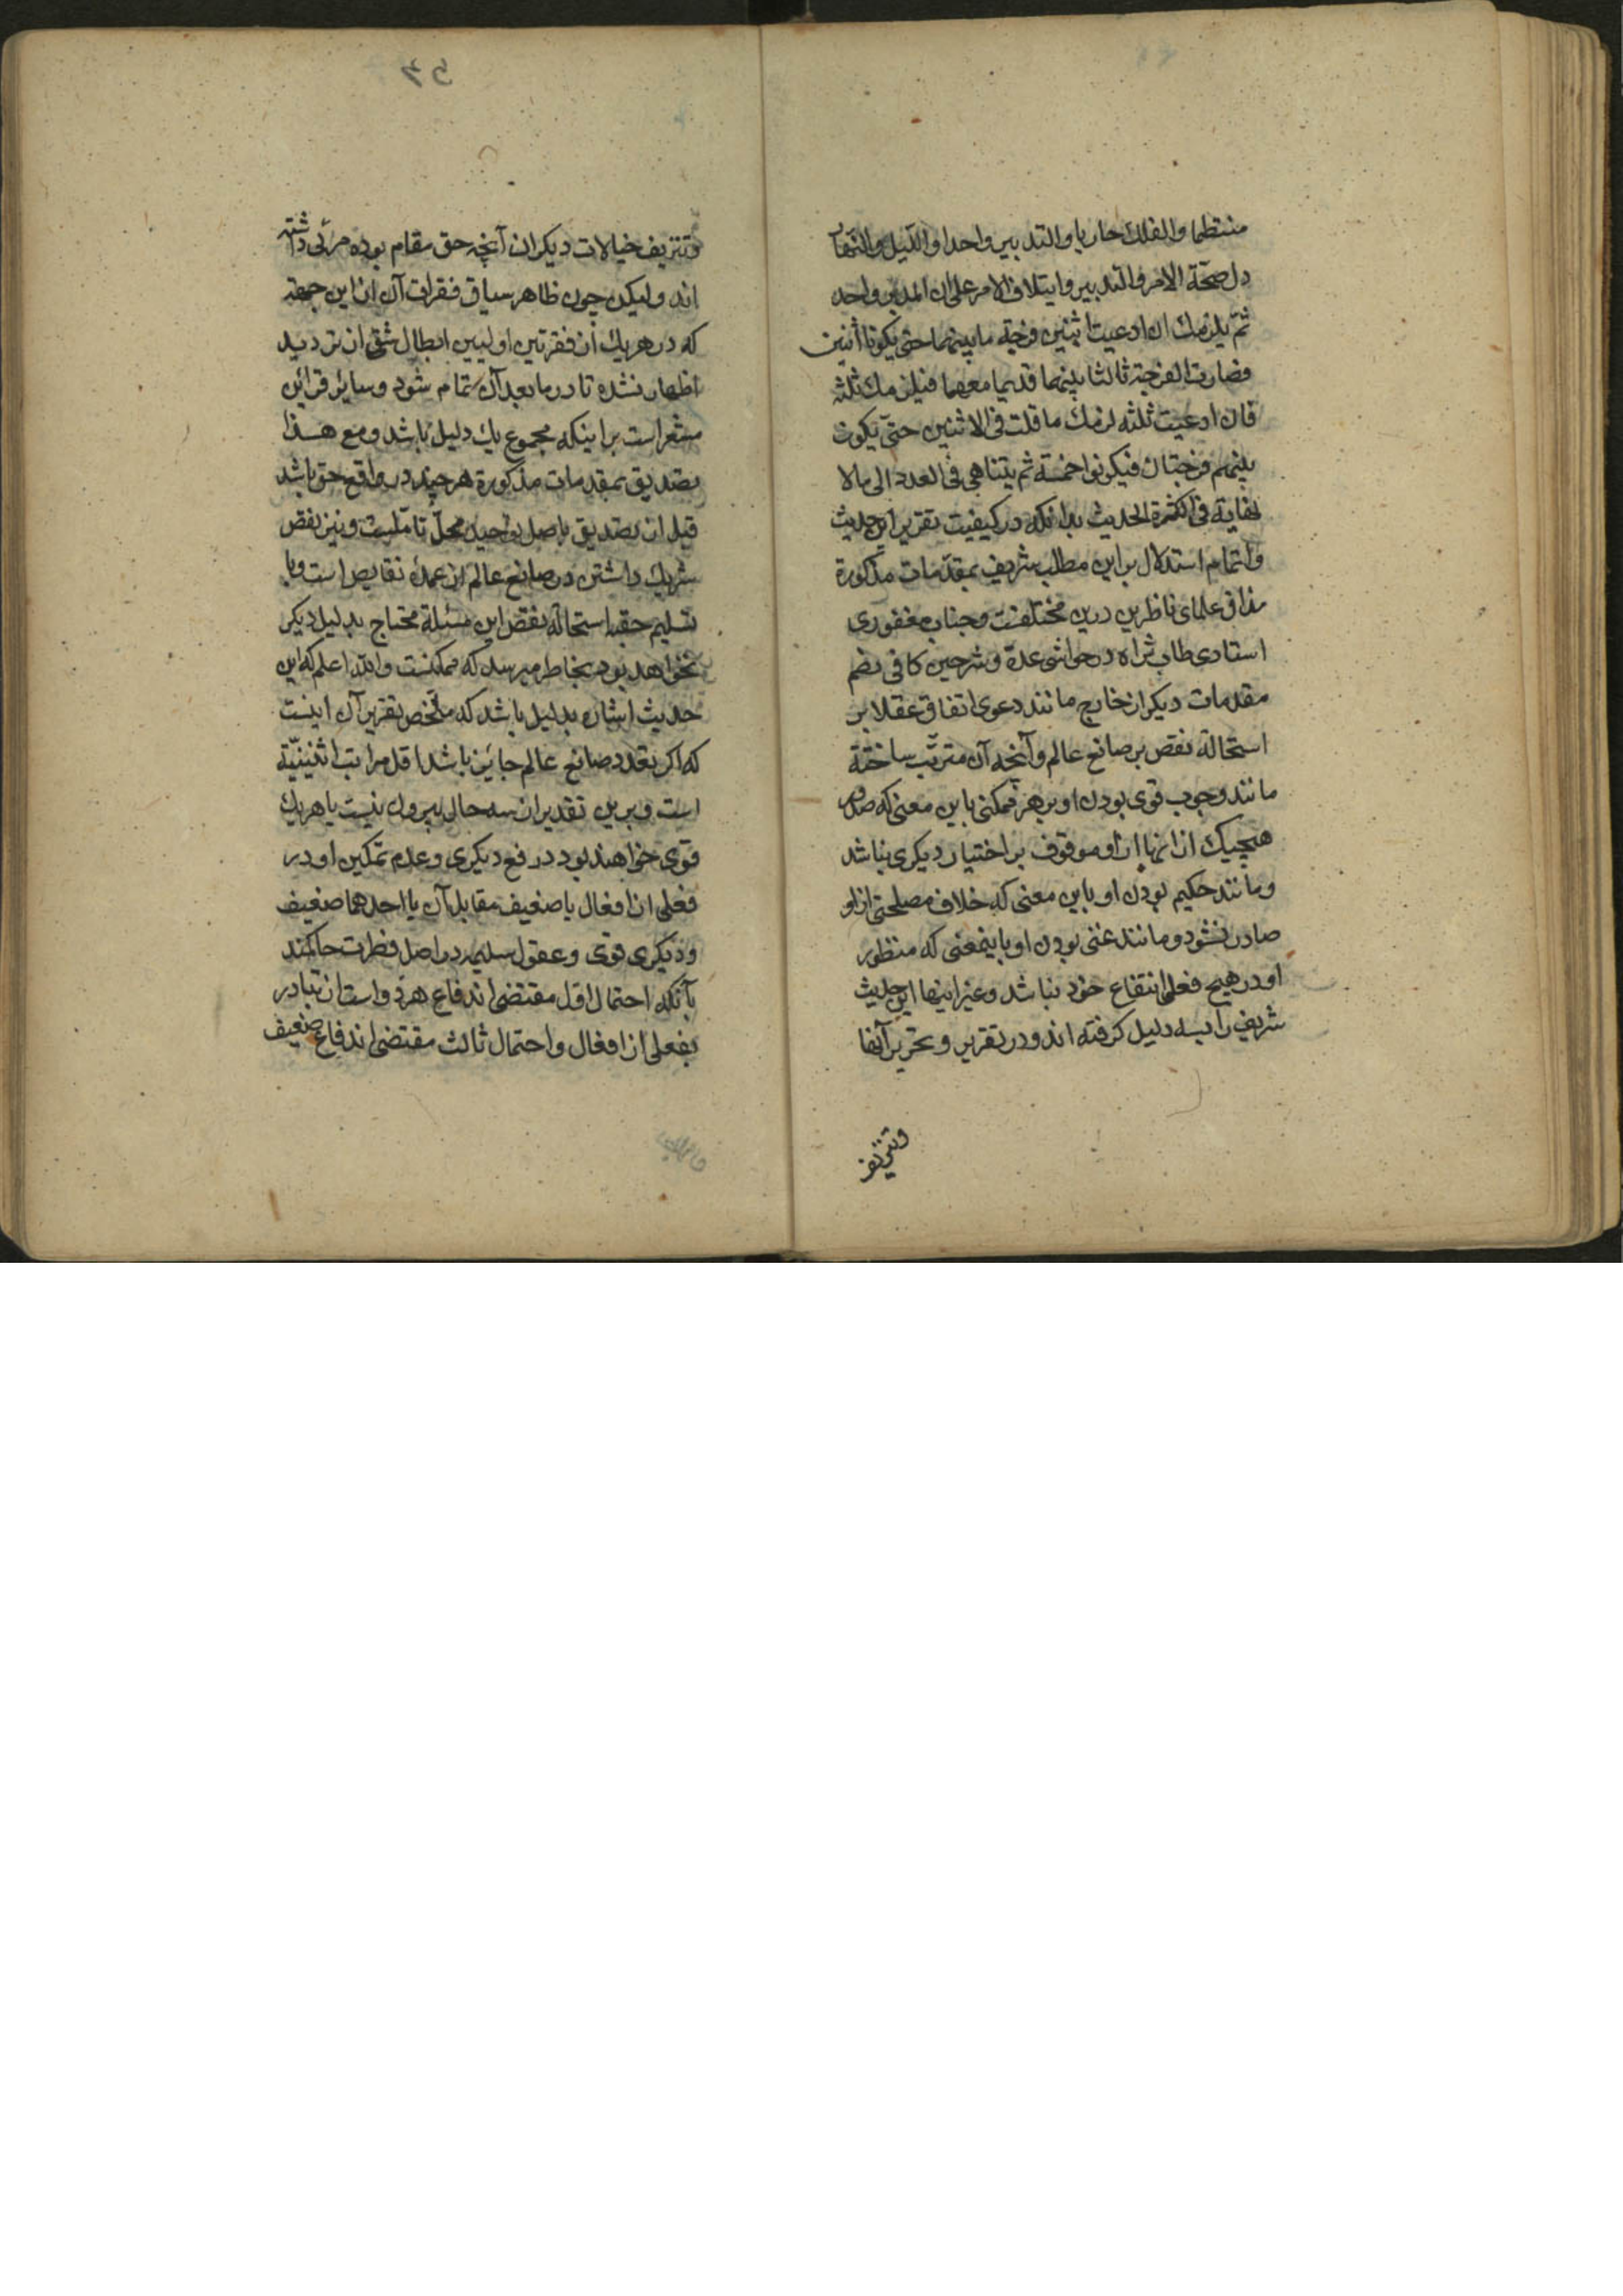 منتظما والفلك جاريا والتدبير واحدا والليل والنهار
دل صحّة الامر والتدبير وايتلاف الامر على ان المدبر واحد
ثمّ يلزمك ان ادعيت اثنين فرجة ما بينهما حتى يكونا اثنين
فصارت الفرجة ثالثا بينهما قديما معهما فيلزمك ثلثة
فان ادعيت ثلثة لزمك ما قلت فى الاثنين حتّى يكون
بينهم فرجتان فيكونوا خمسة ثم يتناهى فى العدد الى ما لا
نهاية فى الكثرة الحديث بدانكه در كيفيت تقرير اين حديث
واتمام استدلال بر اين مطلب شريف بمقدّمات مذكورة
مذاق علماى ناظرين درين مختلفست وجناب مغفورى
استادى طاب ثراه در حواشى عدة وشرحين كافى بضم
مقدمات ديكر از خارج مانند دعوى اتفاق عقلا بر
استحالة نقص بر صانع عالم وآنچه آن مترتّب ساخته
مانند وجوب قوى بودن او بر هر ممكنى باين معنى كه صدور
هيچيك از انها از او موقوف بر اختيار ديكرى نباشد
ومانند حكيم بودن او باين معنى كه خلاف مصلحتى از او
صادر نشود ومانند غنى بودن او باينمعنى كه منظور
او در هيچ فعلى انتفاع خود نباشد وغير اينها اين حديث
شريف را بسه دليل كرفته اند ودر تقرير وتحرير آنها
وتزيف
57
وتزيف خيالات ديكران آنچه حق مقام بوده مرئى داشته
اند وليكن چون ظاهر سياق فقرات آن از اين جهة
كه در هريك از فقرتين اوليين ابطال شقى از ترديد
اظهار نشده تا در ما بعد آن تمام شود وساير قراين
مشعر است بر اينكه مجموع يك دليل باشد ومع هذا
تصديق بمقدمات مذكورة هر چند در واقع حق باشد
قبل از تصديق باصل توحيد محلّ تامّلست ونيز نقص
شريك داشتن در صانع عالم از عمدۀ نقايص است وبا
تسليم حقيه استحالۀ نقص اين مسئلة محتاج بدليل ديكر
نخواهد بود بخاطر ميرسد كه ممكنست والله اعلم كه اين
حديث اشاره بدليل باشد كه ملخّص تقرير آن اينست
كه اكر تعدد صانع عالم جايز باشد اقل مراتب اثنينيّة
است وبرين تقدير از سه حال بيرون نيست يا هريك
قوى خواهند بود در دفع ديكرى وعدم تمكين او در
فعلى از افعال يا ضعيف مقابل آن يا احدهما ضعيف
وديكرى قوى وعقول سليمه در اصل فطرت حاكمند
بآنكه احتمال اول مقتضى اندفاع هر دو است از تبادر
بفعلى از افعال واحتمال ثالث مقتضى اندفاع ضعيف